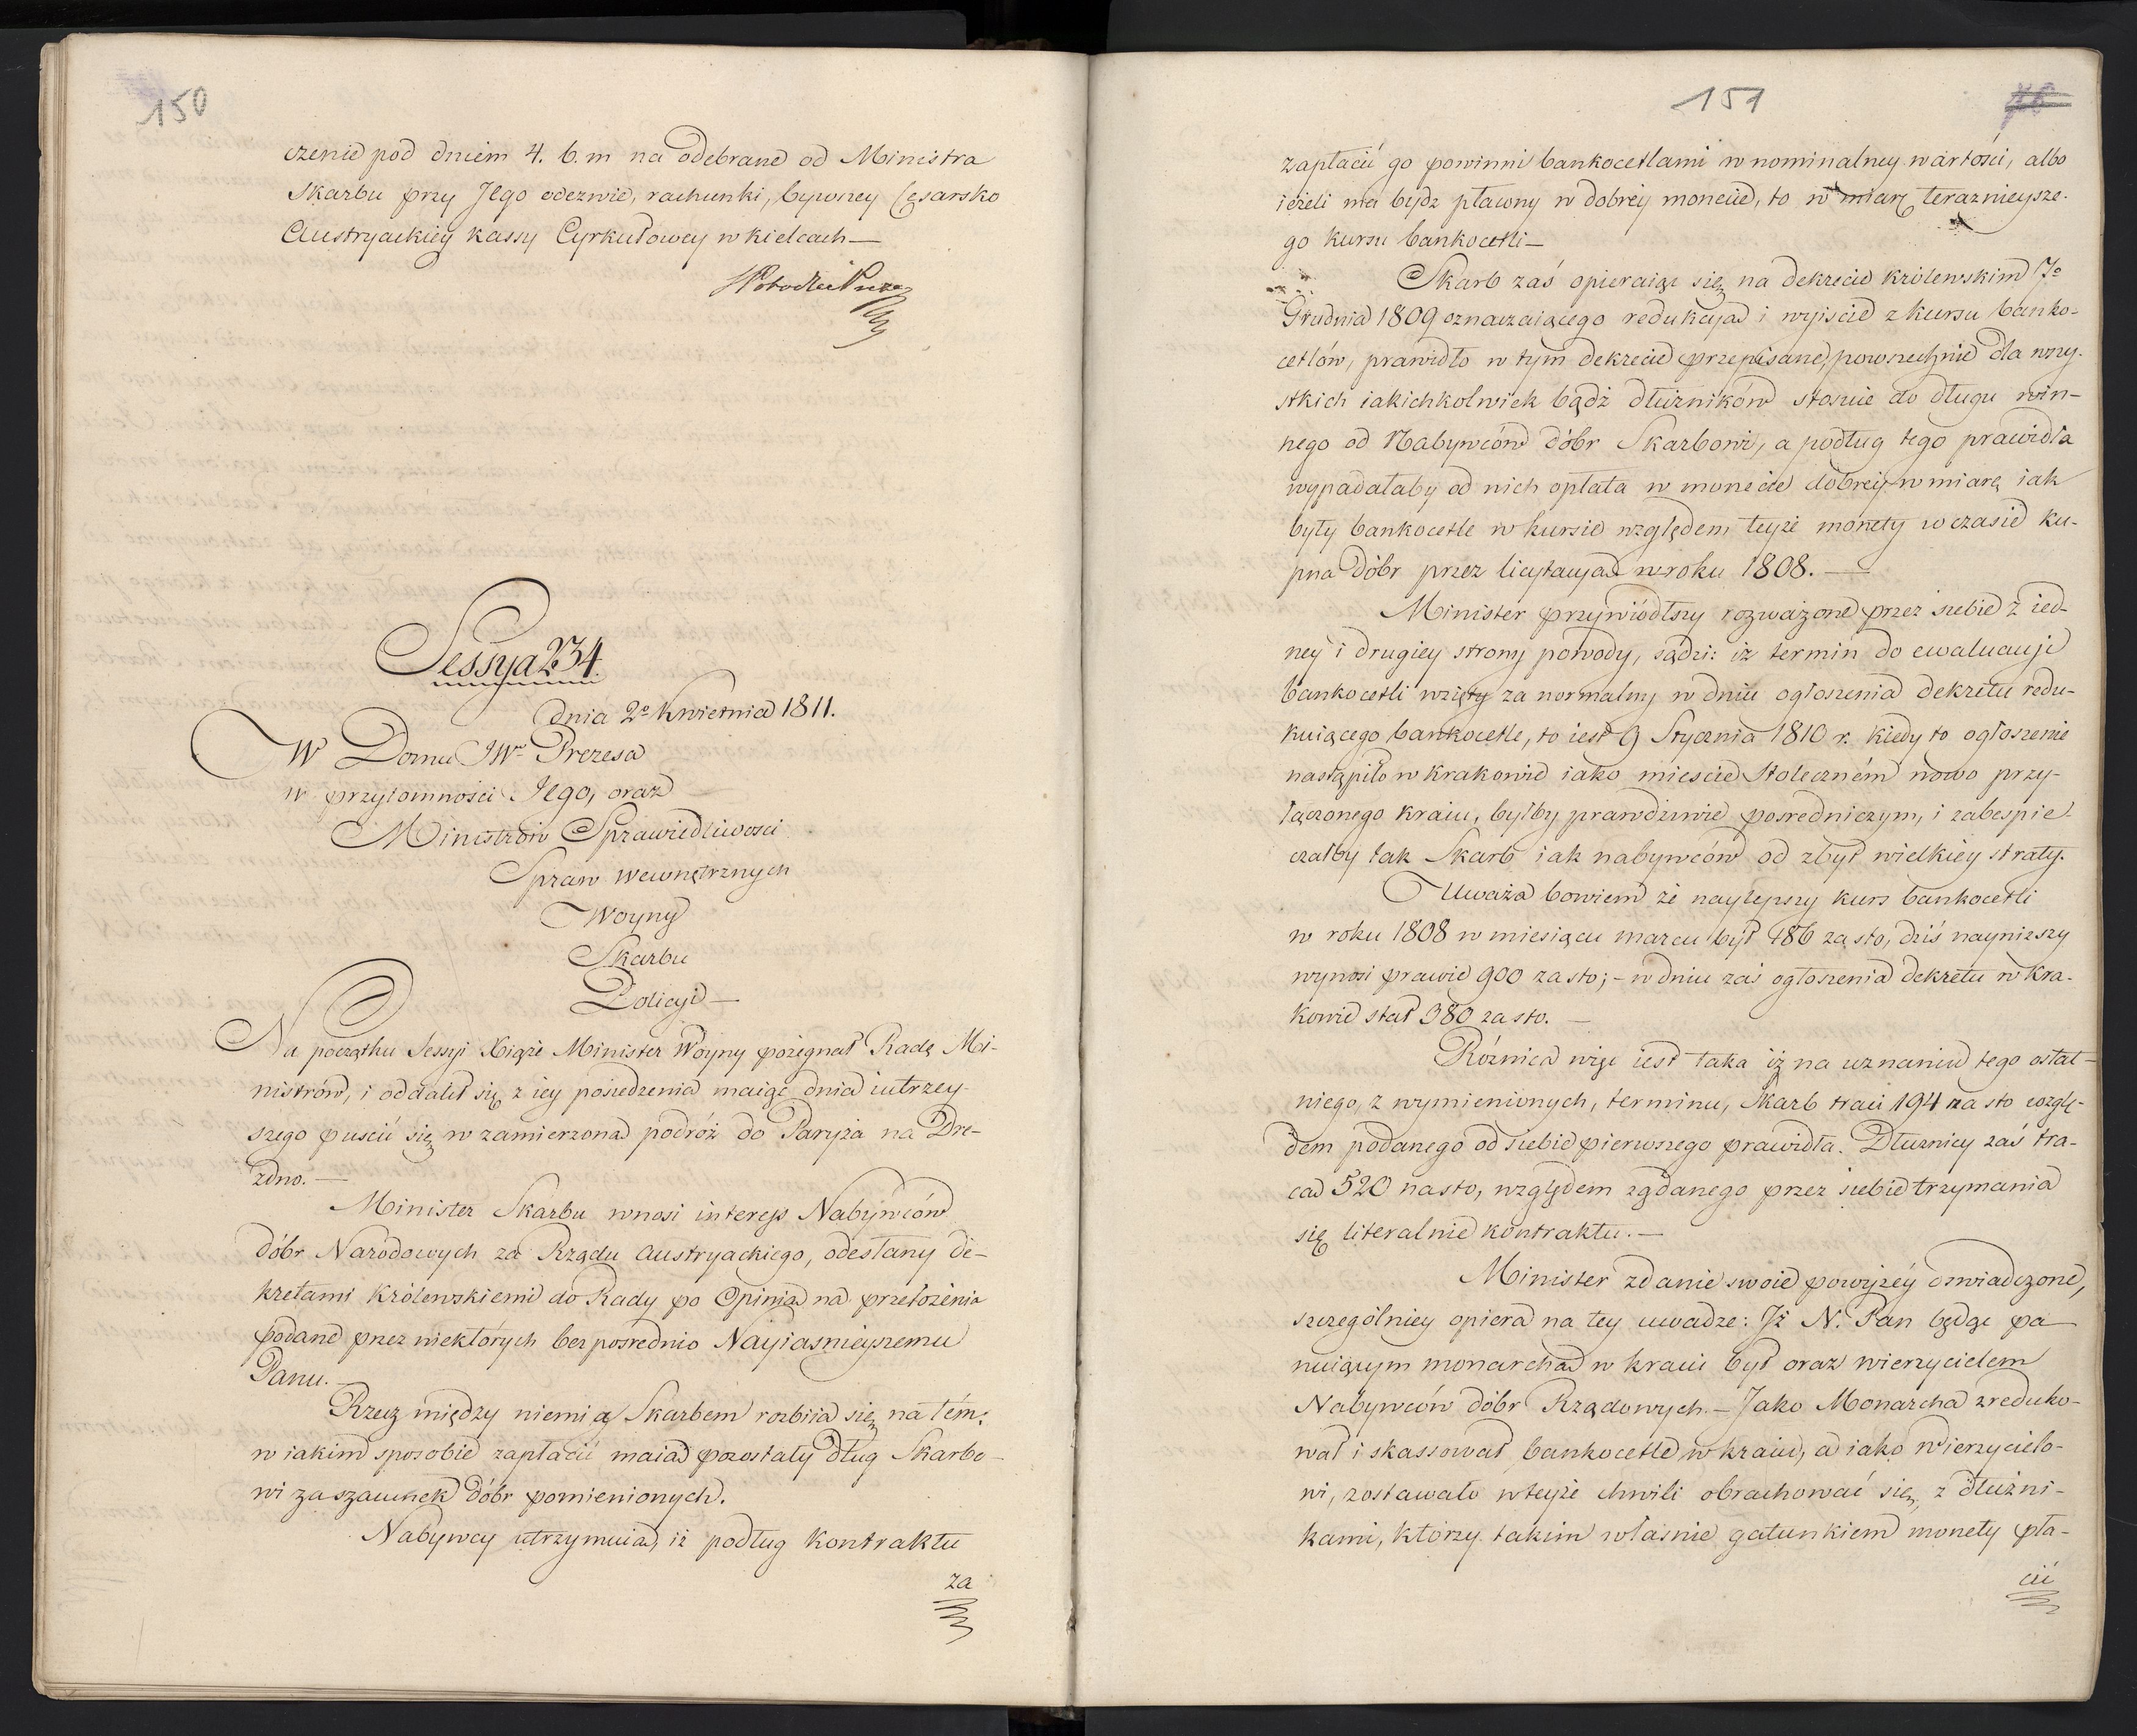 150
czenie pod dniem 4. b. m na odebrane od Ministra
Skarbu przy Jego odezwie, rachunki, bywszey Cesarsko
Austryackiey kassy Cyrkułowey w Kielcach —
Sessya 234.
dnia 2º Kwietnia 1811.
W Domu JWº Prezesa
w przytomności Jego, oraz
Ministrów Sprawiedliwości
Spraw wewnętrznych
Woyny
Skarbu
Policyi —
Na początku Sessyi Xiąże Minister Woyny pożegnał Radę Mi-
nistrów, i oddalił się z iey posiedzenia maiąc dnia iutrzey-
szego puścić się w zamierzoną podróż do Paryża na Dre-
zdno. —
Minister Skarbu wnosi interess Nabywców
dóbr Narodowych za Rządu Austryackiego, odesłany de-
kretami Królewskiemi do Rady po Opinią na przełożenia
podane przez niektórych bezpośrednio Nayiaśnieyszemu
Panu. —
Rzecz między niemi a Skarbem rozbiia się na tém:
w iakim sposobie zapłacić maią pozostały dług Skarbo-
wi za szacunek dóbr pomienionych.
Nabywcy utrzymuią, iż podług Kontraktu
za
151
zapłacić go powinni bankocetlami w nominalney wartości, albo
ieżeli ma bydź płacony w dobrey monecie, to w miarę teraznieysze-
go kursu bankocetli —
Skarb zaś opieraiąc się na dekrecie królewskim 7º
Grudnia 1809 oznaczaiącego redukcyą i wyiście z kursu banko-
cetlów, prawidło w tym dekrecie przepisane, powszechnie dla wszy-
stkich iakichkolwiek bądź dłużników stosuie do długu win-
nego od Nabywców dóbr Skarbowi, a podług tego prawidła
wypadałaby od nich opłata w monecie dobrey w miarę iak
były bankocetle w kursie względem teyże monety w czasie ku-
pna dóbr przez licytacyą w roku 1808. —
Minister przywiódłszy rozważone przez siebie z ied-
ney i drugiey strony powody, sądzi: iż termin do ewaluacyi
bankocetli wzięty za normalny w dniu ogłoszenia dekretu redu-
kuiącego bankocetle, to iest 9 Stycznia 1810 r. kiedy to ogłoszenie
nastąpiło w Krakowie iako mieście Stołeczném nowo przy-
łączonego kraiu, byłby prawdziwie pośredniczym, i zabespie-
czałby tak Skarb iak nabywców od zbyt wielkiey straty.
Uważa bowiem że naylepszy kurs bankocetli
w roku 1808 w miesiącu marcu był 186 za sto, dziś nayniższy
wynosi prawie 900 za sto; – w dniu zaś ogłoszenia dekretu w Kra-
kowie stał 380 za sto. —
Różnica więc iest taka iż na uznaniu tego ostat-
niego, z wymienionych, terminu, Skarb traci 194 na sto wzglę-
dem podanego od siebie pierwszego prawidła. Dłużnicy zaś tra-
cą 520 na sto, względem żądanego przez siebie trzymania
się literalnie kontraktu. —
Minister zdanie swoie powyżéy oświadczone,
szczególniey opiera na tey uwadze: Iż N. Pan będąc pa-
nuiącym monarchą w kraiu był oraz wierzycielem
Nabywców dóbr Rządowych — Jako Monarcha zreduko-
wał i skassował bankocetle w kraiu, a iako Wierzycielo-
wi, zostawało w teyże chwili obrachować się, z dłużni-
kami, którzy takim właśnie gatunkiem monety pła-
cić